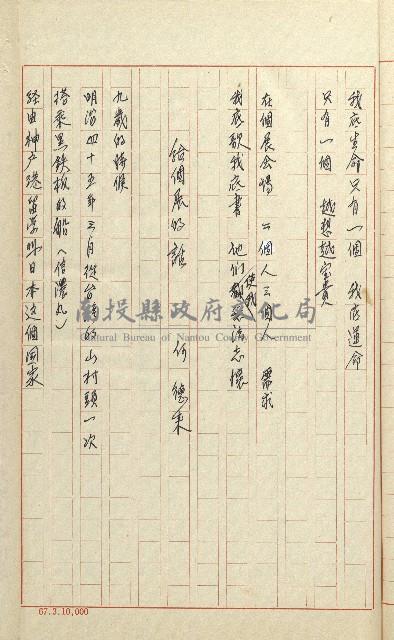 我底生命只有一個 我底運命
只有一個 越想越宝貴
在個展会場 二個人三個人 需求
我底歌我底書 他們使我無法忘懷
給個展的話 何 德來
九歲的時候
明治四十五年三月從台灣的山村頭一次
搭乘黑鉄板的船(信濃丸)
経由神户港留学來日本这個國家
南投縣政府文化局
Cultural Bureau of Nantou County Government
67.3.10,000